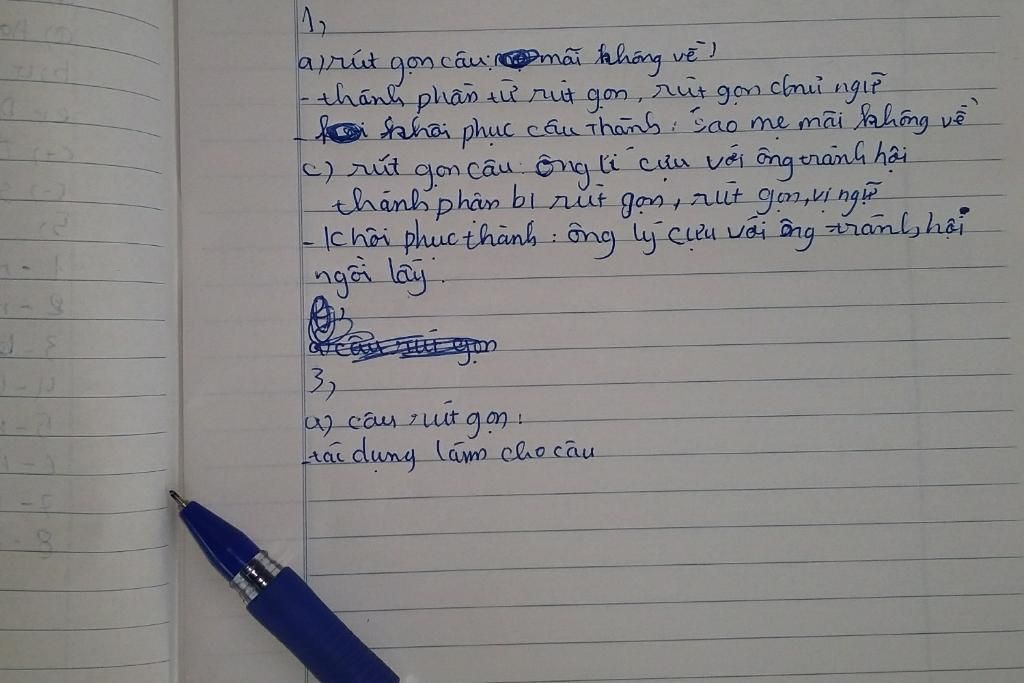 1,
a) rút gọn câu: mãi không về
- thành phần từ rút gọn, rút gọn chủ ngữ
- khôi phục câu thành: sao mẹ mãi không về
c) rút gọn câu: ông lí cựu với ông tránh hội
thành phần bị rút gọn, rút gọn, vị ngữ
- khôi phục thành: ông lý cựu với ông tránh hội
ngồi lấy.
câu rút gọn
3,
a) câu rút gọn:
- tác dụng làm cho câu